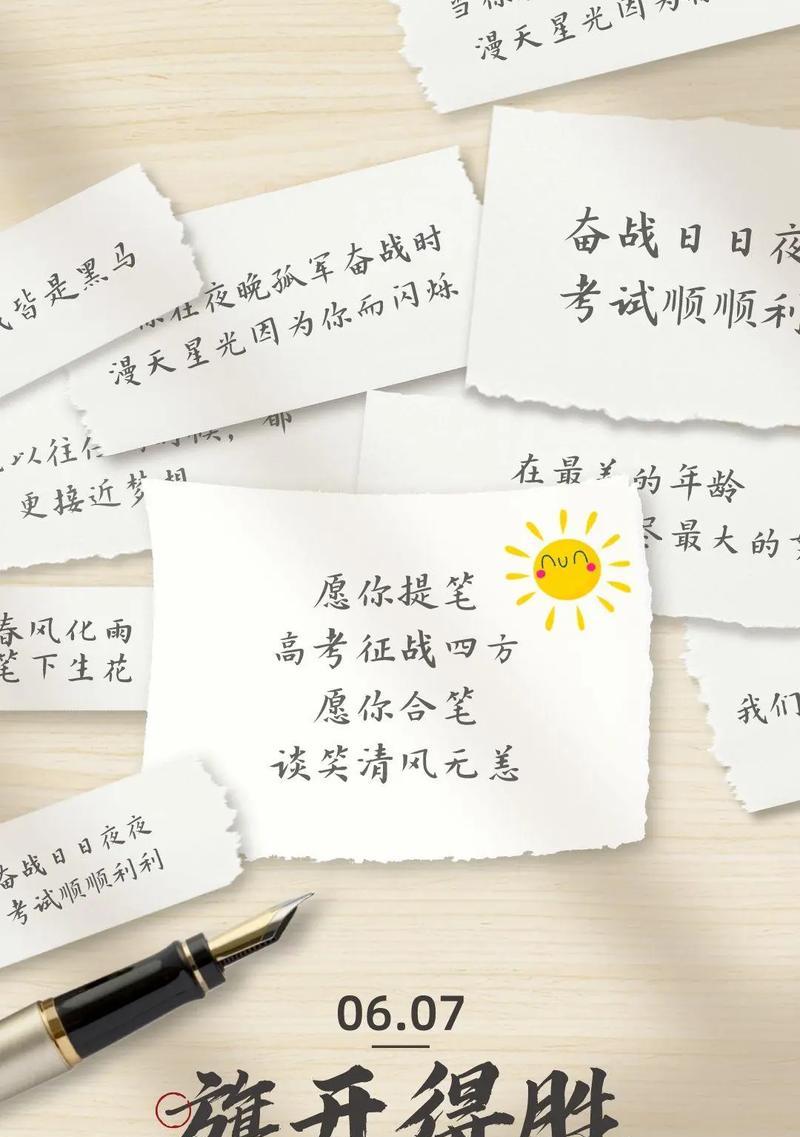 漫天星光因为
奋战日日夜
考试顺顺利
皆是黑马
在夜晚孤军奋战时
漫天星光因为你而闪烁
以往
都
更接近梦想
在最美的年龄
尽最大的
春风化雨
笔下生花
愿你提笔
高考征战四方
愿你合笔
谈笑清风无恙
我们
奋战日日夜夜
考试顺顺利利
06.07
旗开得胜